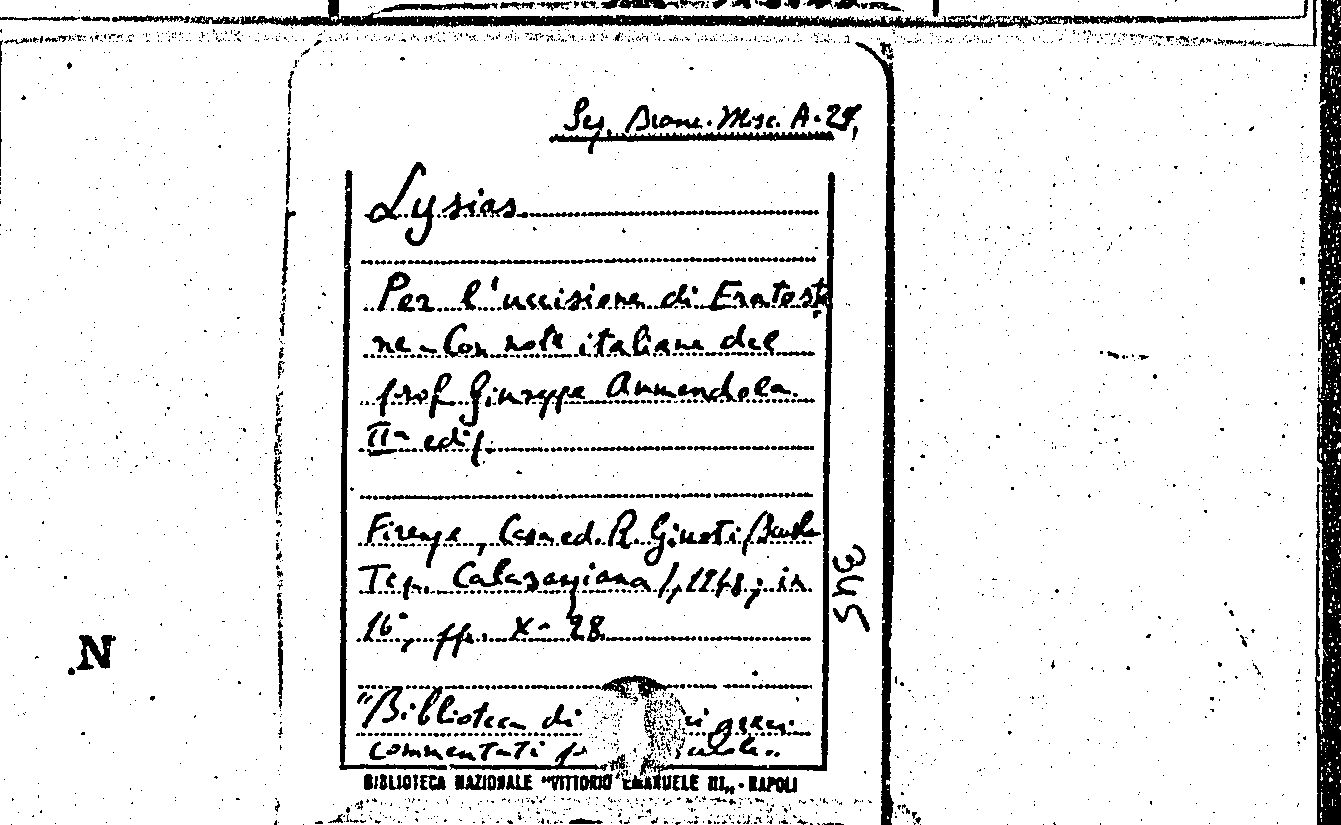 Lysias.
Per l'uccisione di Eratoste
ne - Con note italiane del
prof. Giuseppe Ammendola.
IIª ediz.
Firenze, Casa ed. R. Giusti
Tip. Calasanziana
16°, pp. X - 28
"Biblioteca di greci
commentati
345
N
BIBLIOTECA NAZIONALE "VITTORIO EMANUELE III" - NAPOLI